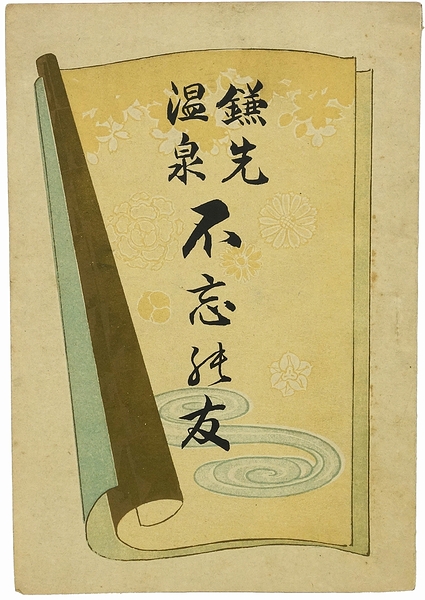 鎌先
温泉
不忘能友